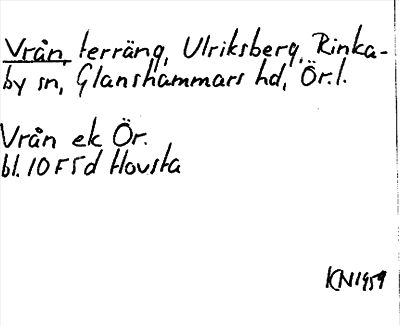 Vrån, terräng, Ulriksberg, Rinka-
by sn, Glanshammars hd, Ör.l.
Vrån ek Ör.
bl. 10 F 5 d Hovsta
KN 1959